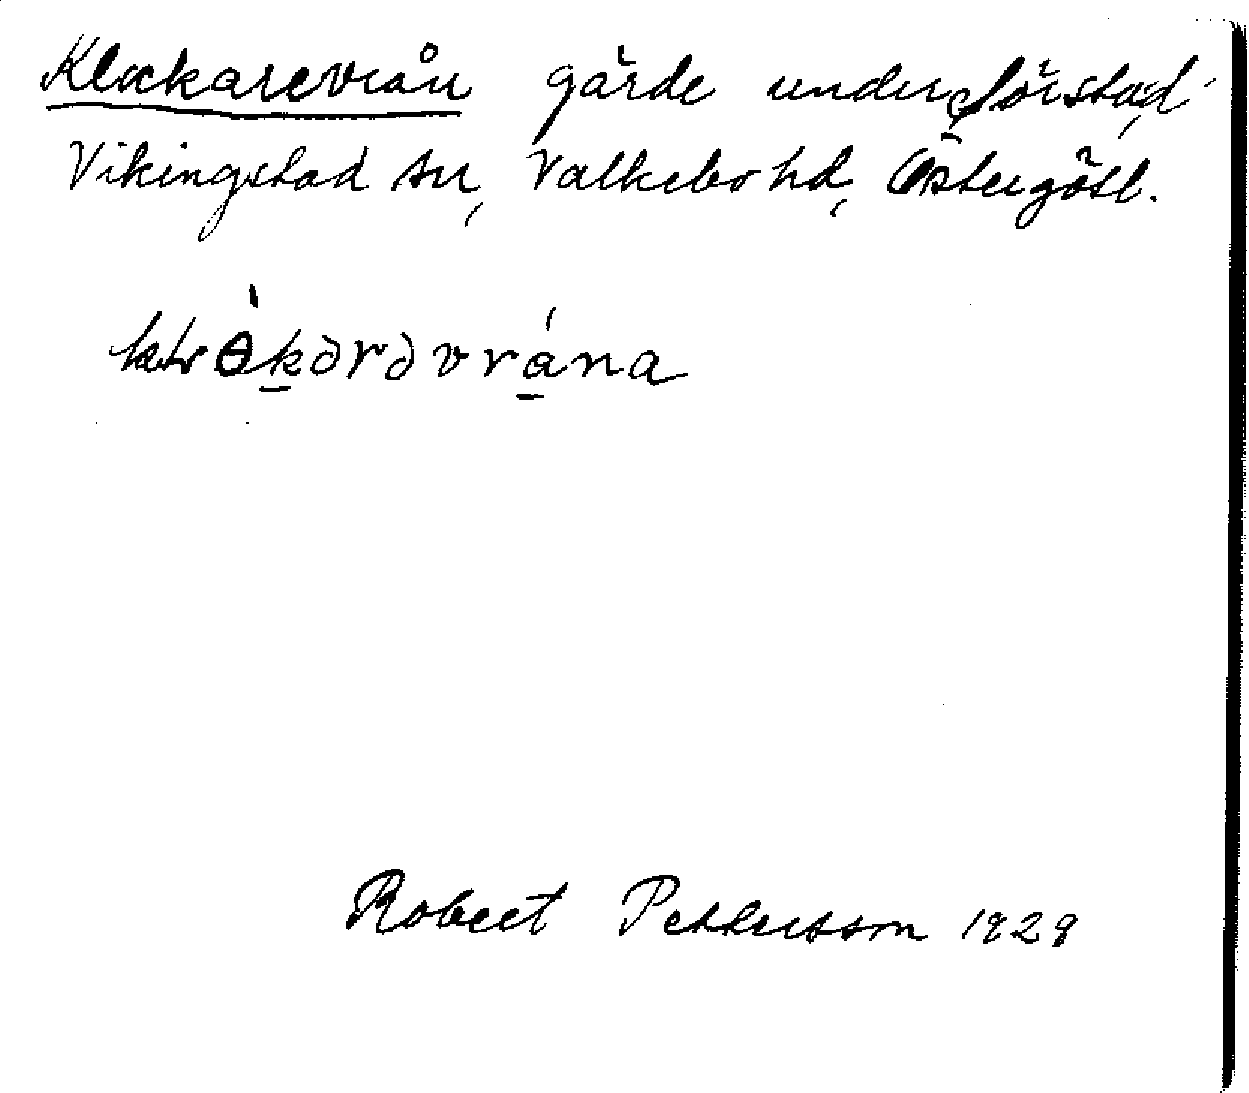 Klockarevrån gärde under Sörstad,
Vikingstad sn, Valkebo hd, Östergötl.
Robert Pettersson 1929